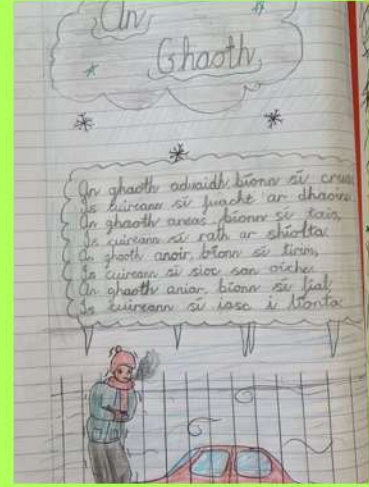 An
Ghaoth
An ghaoth aduaidh bíonn sí crua,
Is cuireann sí fuacht ar dhaoine.
An ghaoth aneas, bíonn sí tais,
Is cuireann sí rath ar shíolta.
An ghaoth anoir, bíonn sí tirim,
Is cuireann sí sioc san oíche.
An ghaoth aniar, bíonn sí fial,
Is cuireann sí iasc i líonta.